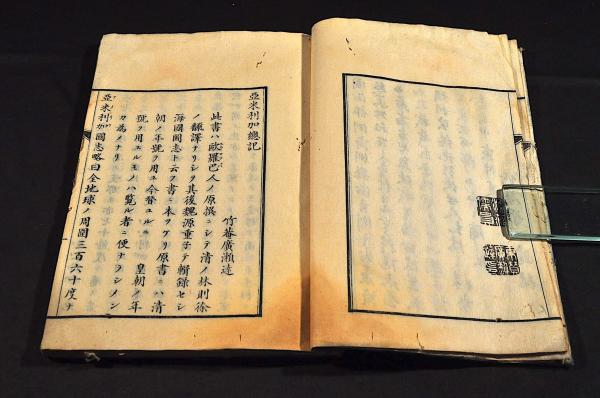 亞米利加總記
竹菴廣瀬達
此書ハ歐羅巴人ノ原撰ニシテ清ノ林則徐
ノ飜譯ナリシヲ其後魏源重子テ輯録セシ
海國圖志ト云フ書ニ本ヲケリ原書ニハ清
朝ノ年號ヲ用ユ今督ユルニ 皇朝ノ年
號ヲ用ユルモノハ覧ル者ニ便ナラシメン
カ為メナリ
亞米利加國志略曰全地球ノ周圍三百六十度ヲ